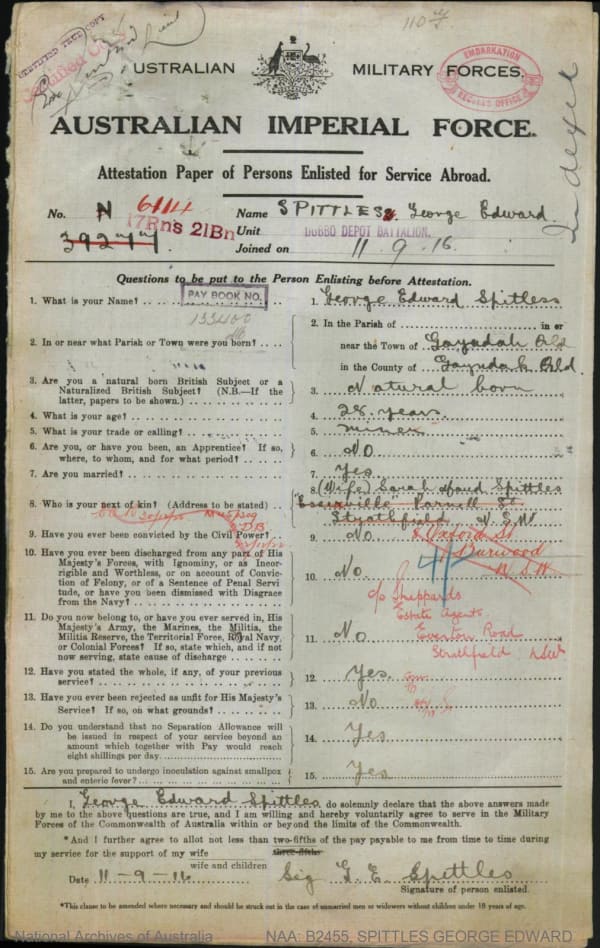 CERTIFIED TRUE COPY
110
AUSTRALIAN MILITARY FORCES.
EMBARKATION
RECORDS OFFICE
AUSTRALIAN IMPERIAL FORCE.
Indexed
Attestation Paper of Persons Enlisted for Service Abroad.
No. N 6114 Name SPITTLES George Edward
17Rns 21Bn Unit DUBBO DEPOT BATTALION.
39277 Joined on 11.9.16.
Questions to be put to the Person Enlisting before Attestation.
1. What is your Name? 1. George Edward Spittles
PAY BOOK NO.
133400
2. In the Parish of in or
2. In or near what Parish or Town were you born? near the Town of Gayndah Qld
in the County of Gayndah Qld
3. Are you a natural born British Subject or a
Naturalized British Subject? (N.B.—If the 3. Natural born
latter, papers to be shown.)
4. What is your age? 4. 28 years
5. What is your trade or calling? 5. miner
6. Are you, or have you been, an Apprentice? If so, 6. NO
where, to whom, and for what period?
7. Are you married? 7. Yes
8. (Wife) Sarah Maud Spittles
8. Who is your next of kin? (Address to be stated) Parnell St
Strathfield N.S.W
9. Have you ever been convicted by the Civil Power? 9. No Oxford St
Burwood
N S W
10. Have you ever been discharged from any part of His
Majesty's Forces, with Ignominy, or as Incor-
rigible and Worthless, or on account of Convic- 10. No.
tion of Felony, or of a Sentence of Penal Servi
tude, or have you been dismissed with Disgrace
from the Navy?
c/o Sheppards
Estate Agents
Everton Road
Strathfield NSW
11. Do you now belong to, or have you ever served in, His
Majesty's Army, the Marines, the Militia, the
Militia Reserve, the Territorial Force, Royal Navy, 11. No
or Colonial Forces? If so, state which, and if not
now serving, state cause of discharge
12. Have you stated the whole, if any, of your previous
service? 12. Yes.
13. Have you ever been rejected as unfit for His Majesty's
Service? If so, on what grounds? 13. No
14. Do you understand that no Separation Allowance will
be issued in respect of your service beyond an
amount which together with Pay would reach 14. Yes
eight shillings per day
15. Are you prepared to undergo inoculation against smallpox
and enteric fever? 15. Yes
I, George Edward Spittles do solemnly declare that the above answers made
by me to the above questions are true, and I am willing and hereby voluntarily agree to serve in the Military
Forces of the Commonwealth of Australia within or beyond the limits of the Commonwealth.
*And I further agree to allot not less than two-fifths of the pay payable to me from time to time during
three-fifths
my service for the support of my wife
wife and children
Date 11-9-16 Sig G. E. Spittles
Signature of person enlisted.
*This clause to be amended where necessary and should be struck out in the case of unmarried men or widowers without children under 18 years of age.
National Archives of Australia NAA: B2455, SPITTLES GEORGE EDWARD